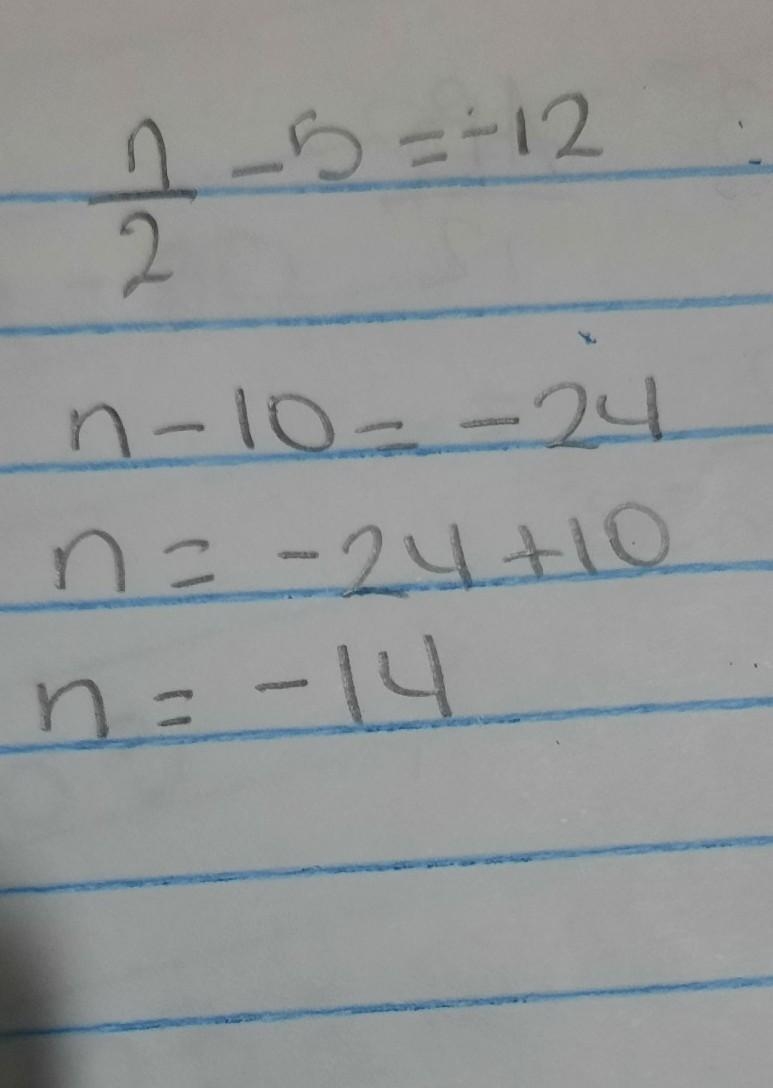 n/2 - 5 = -12
n - 10 = - 24
n = - 24 + 10
n = - 14